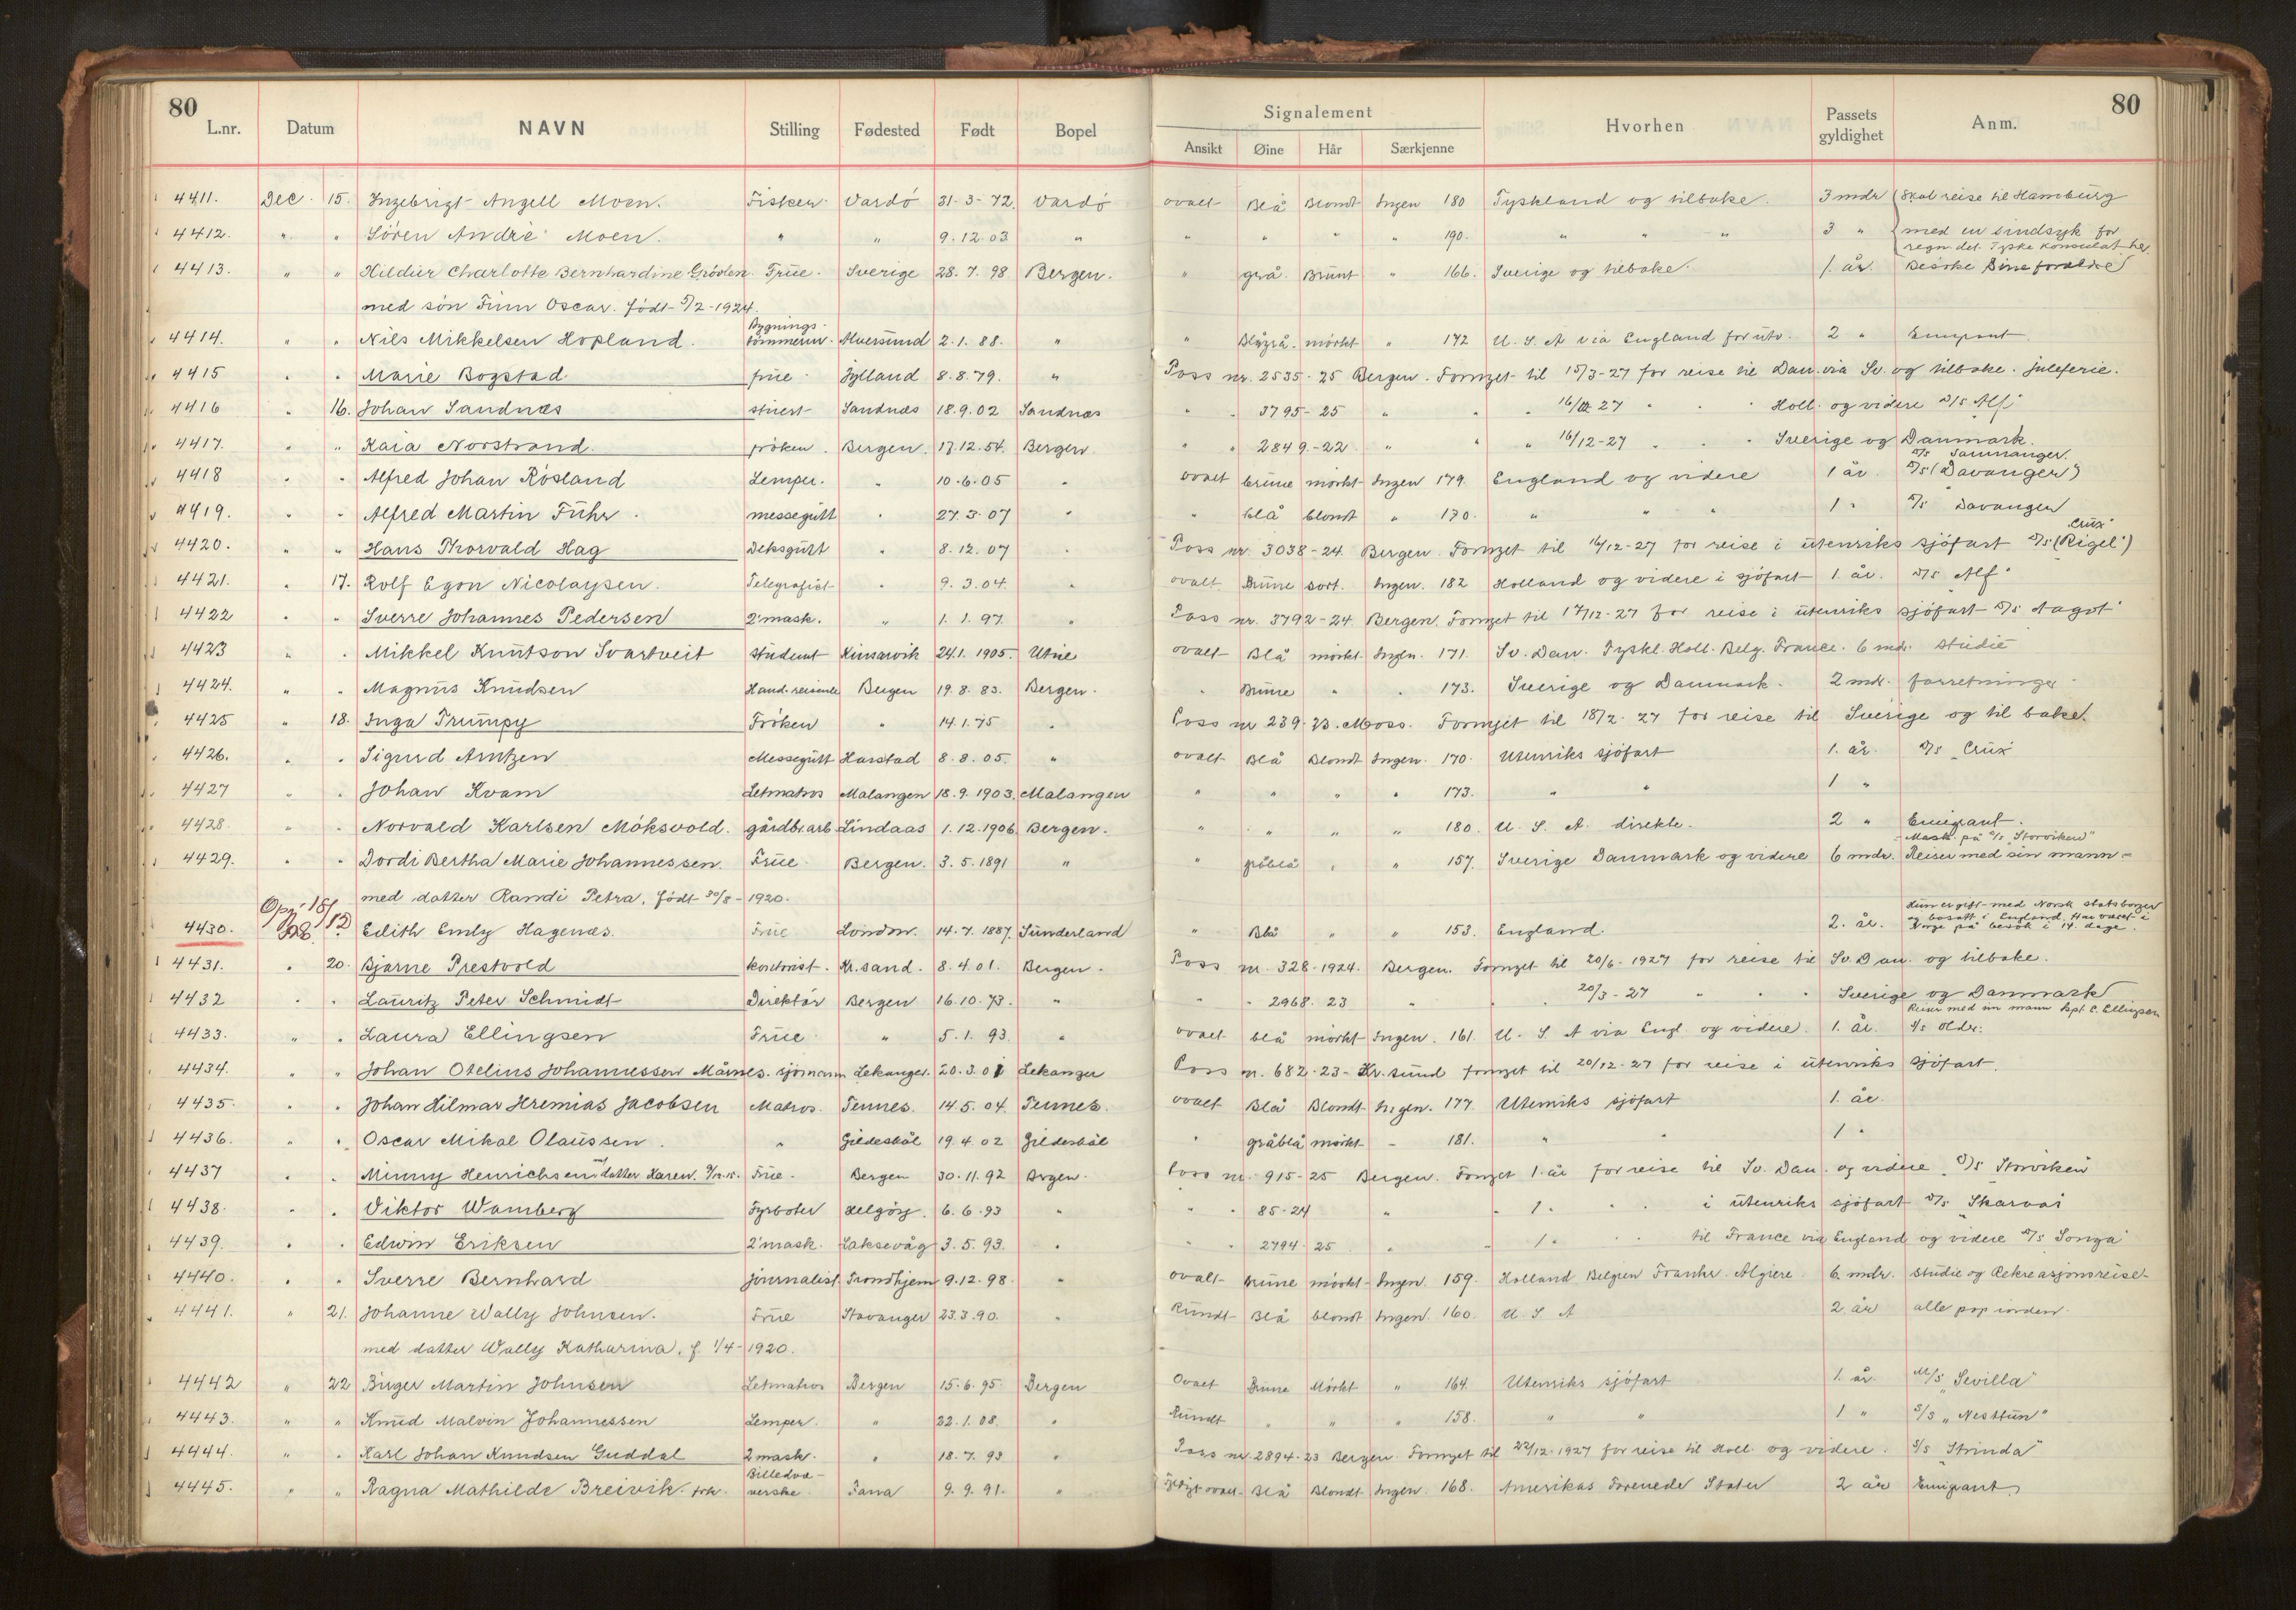 80
L.nr. Datum NAVN Stilling Fødested Født Bopel
Signalement Hvorhen Passets gyldighet Anm. 80
Ansikt Øine Hår Særkjenne
4411. Dec. 15. Ingebrigt Angell Moen. Fisker Vardö 31-3-72. Vardö ovalt Blå Blondt Ingen 180 Tyskland og tilbake. 3 mdr Skal reise til Hamburg
4412. " " Sören Andrè Moen. " " 9.12.03 " " " " " 190. " " " 3 " med en sindsyk for
regn. det Tyske Konsulat her
4413. " " Hildur Charlotte Bernhardine Grövlen Frue. Sverige 28.7.98 Bergen. " grå. Brunt " 166. Sverige og tilbake. 1. år. Besöke sine foreldre
med sön Finn Oscar. födt 5/2-1924.
4414. " " Nils Mikkelsen Hopland. Bygnings-tömmerm. Alversund 2.1.88. " " Blågrå. mörkt " 172 U.S.A via England for utv. 2 " Emigrant
4415 " " Marie Bogstad. frue Jylland 8.8.79. " Pass nr. 2535-25 Bergen. Fornyet til 15/3-27 for reise til Dan. via Sv. og tilbake. juleferie.
4416 " 16. Johan Sandnæs stuert Sandnæs 18.9.02 Sandnæs " " 3795-25 " " " 16/III 27 " " Holl. og videre D/S Alf
4417. " " Kaia Norstrand. fröken. Bergen. 17.12.54. Bergen. " " 2849-22 " " " 16/12-27 " " Sverige og Danmark.
D/s Samnanger.
4418 " " Alfred Johan Rösland Lemper. " 10.6.05 " ovalt brune mörkt Ingen 179. England og videre 1 år D/s (Davanger)
4419. " " Alfred Martin Führ. messegutt " 27.3.07 " " blå blondt " 170. " " " 1 " D/s Davanger
"Crux"
4420. " " Hans Thorvald Hag Deksgutt " 8.12.07 " Pass nr. 3038-24 Bergen. Fornyet til 16/12-27 for reise i utenriks sjöfart D/s (Rigel)
4421. " 17. Rolf Egon Nicolaysen. Telegrafist " 9.3.04. " ovalt. Brune sort. Ingen. 182 Holland og videre i sjöfart 1. år. D/S Alf
4422 " " Sverre Johannes Pedersen 2' mask. " 1.1.97. " Pass nr. 3792-24 Bergen. Fornyet til 17/12-27 for reise i utenriks sjöfart D/s Aagot
4423 " " Mikkel Knutson Svartveit student Kinsarvik 24.1.1905. Utne ovalt Blå mörkt Ingen. 171. Sv. Dan. Tyskl. Holl. Belg. France. 6 mdr. studie
4424. " " Magnus Knudsen Hand.reisende Bergen 19.8.83. Bergen. " Brune " " 173. Sverige og Danmark. 2 mdr. forretninger
4425 " 18. Inga Trumpy Fröken " 14.1.75 " Pass nr 239-23. Moss. Fornyet til 18/2-27 for reise til Sverige og til bake.
4426. " " Sigurd Arntzen Messegutt Harstad 8.8.05. " ovalt Blå Blondt Ingen. 170. Utenriks sjöfart 1. år. D/s "Crux"
4427 " " Johan Kvam Letmatros Malangen 18.9.1903. Malangen " " " " 173. " " 1 "
4428. " " Norvald Karlsen Möksvold. gårdbr.arb Lindaas 1.12.1906 Bergen. " " " " 180. U.S.A. direkte. 2 " Emigrant.
Mask. på D/s "Storviken"
4429. " " Dordi Bertha Marie Johannessen. Frue Bergen. 3.5.1891 " " gråblå " " 157. Sverige Danmark og videre 6 mdr. Reiser med sin mann
med datter Randi Petra, födt 30/8-1920.
Hun er gift med Norsk statsborger
4430. Opg. 18/12 28. Edith Emly Hagenæs. Frue London. 14.7.1887. Sunderland " Blå " " 153. England. 2. år. og bosatt i England. Har været i
Norge på besök i 14 dage.
4431. " 20. Bjarne Prestvold kontorist. Kr.sand. 8.4.01. Bergen. Pass nr. 328-1924. Bergen. Fornyet til 20/6-1927 for reise til Sv. Dan. og tilbake.
4432 " " Lauritz Peter Schmidt Direktör Bergen 16.10.73. " " " 2968.23 " " " 20/3-27 " " Sverige og Danmark
Reiser med sin mann kpt. E. Ellingsen
4433. " " Laura Ellingsen Frue " 5.1.93. " ovalt blå mörkt Ingen. 161. U.S.A via Engl. og videre. 1. år. D/s Older.
4434. " " Johan Otelius Johannessen Måsnes. sjömann Lekanger. 20.3.01 Lekanger Pass nr. 682.23-Kr.sund fornyet til 20/12-27 for reise i utenriks sjöfart.
4435. " " Johan Hilmar Hremias Jacobsen Matros. Tennes. 14.5.04. Tennes. ovalt Blå Blondt Ingen. 177. Utenriks sjöfart 1. år.
4436. " " Oscar Mikal Olaussen. " Gildeskål 19.4.02 Gildeskål " gråblå mörkt - 181. " " 1 "
4437 " " Minny Henrichsen datter Karen. Frue. Bergen 30.11.92 Bergen. Pass nr. 915-25 Bergen. Fornyet 1. år for reise til Sv. Dan. og videre. D/s Storviken
4438. " " Viktor Wamberg Fyrböter Helgöy. 6.6.93 " " " 85-24 " " 1. " " i utenriks sjöfart D/s "Skarvas"
4439. " " Edwin Eriksen 2' mask. Laksevåg 3.5.93. " " " 2794.25 " " 1. " " til France via England og videre D/s Songa
4440. " " Sverre Bernhard journalist Trondhjem 9.12.98. " ovalt brune mörkt Ingen. 159. Holland Belgien Frankr. Algiere. 6. mdr. studie og Rekreasjonsreise
4441. " 21. Johanne Wally Johnsen. Frue Stavanger 23.3.90. " Rundt Blå blondt Ingen. 160. U.S.A 2. år alle
med datter Wally Katharina. f. 1/4-1920.
4442 " 22 Birger Martin Johnsen Letmatros Bergen 15.6.95. Bergen Ovalt Brune Mörkt " 164. Utenriks sjöfart 1. år. M/S "Sevilla"
4443. " " Knud Malvin Johannessen Lemper. " 22.1.08. " Rundt " " " 158. " " 1 " S/S "Nesttun"
4444. " " Karl Johan Knudsen Guddal 2 mask. " 18.7.93 " Pass nr. 2894-23 Bergen. Fornyet til 22/12-1927 for reise til Holl. og videre. S/s "Strinda"
4445. " " Ragna Mathilde Breivik. frk. Billedvæ-verske. Fana 9.9.91. " ovalt Blå Blondt Ingen. 168. Amerikas Forenede Stater 2 år Emigrant.